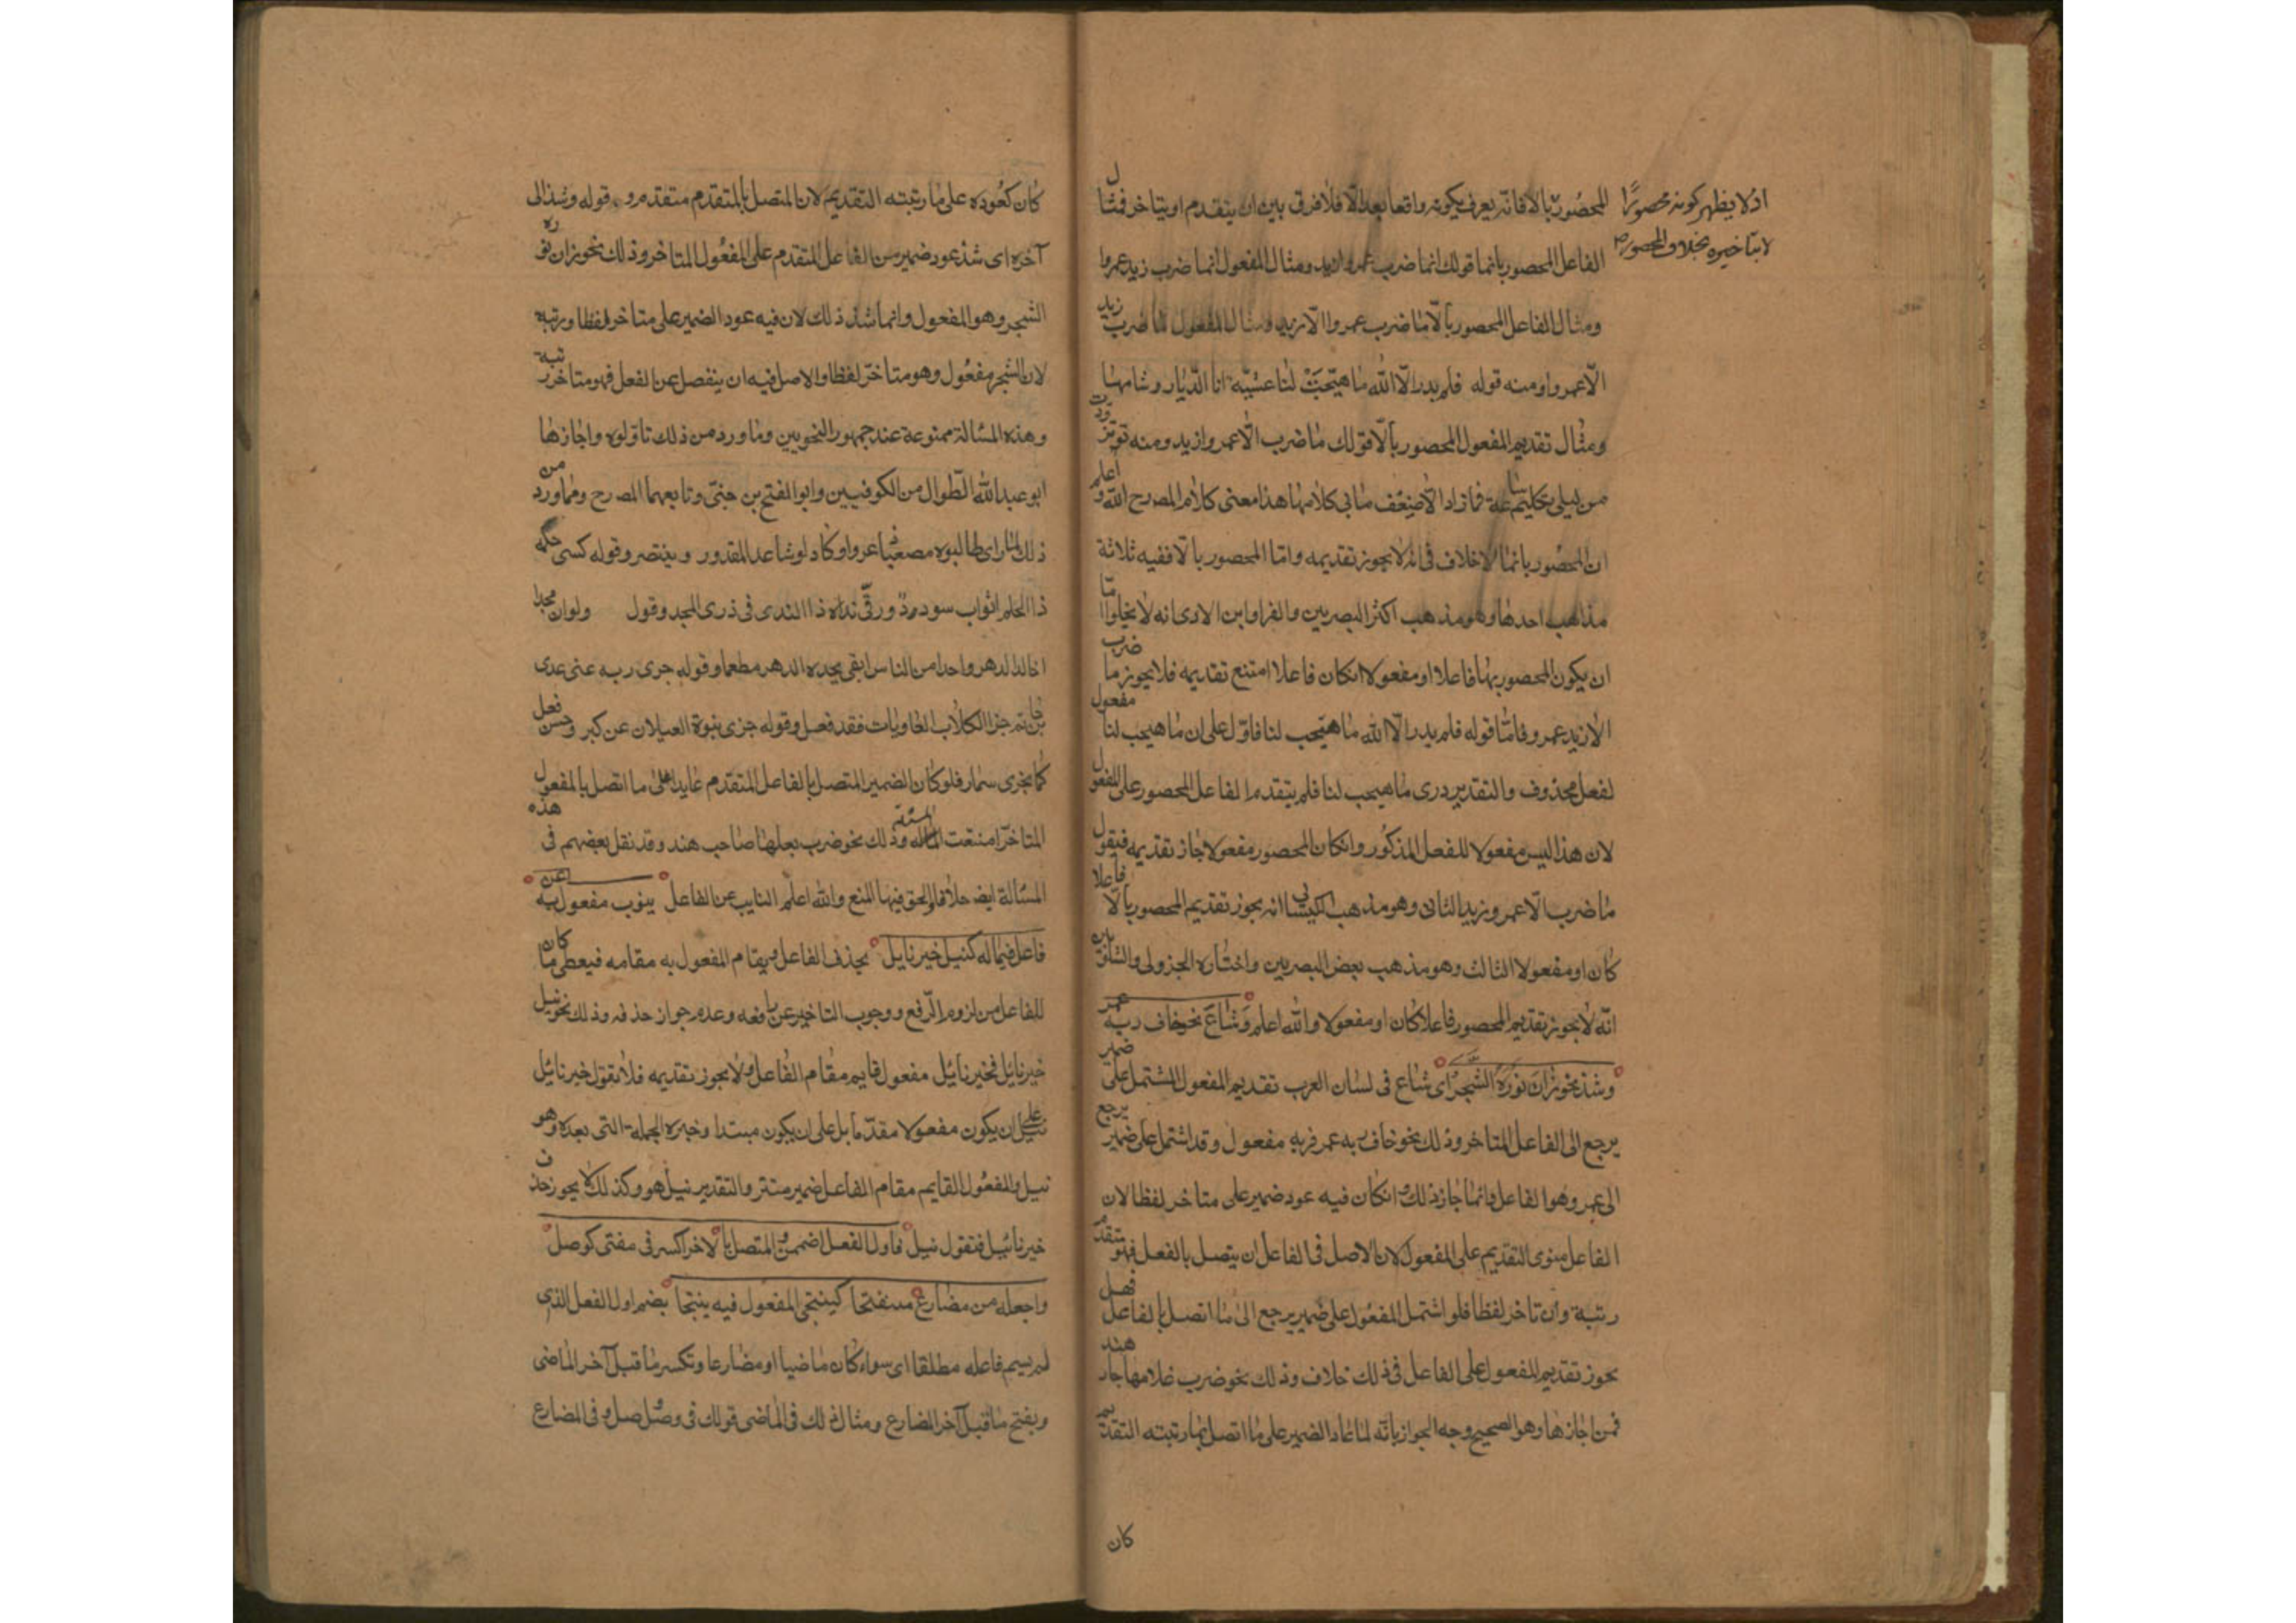 اذ لا يظهر كونه محصورًا
لا بتاخيره بخلاف المحصور
المحصور بالا فانه يعرف بكونه واقعا بعد الّا فلا فرق بين ان يتقدم او يتاخر فمثال
الفاعل المحصور بانما قولك انما ضرب عمروا زيد ومثال المفعول انما ضرب زيد عمروا
ومثال الفاعل المحصور بالّا ما ضرب عمروا الّا زيد ومثال المفعول ما ضرب زيد
الّا عمروا ومنه قوله فلم يدر الّا الله ما هيّجت لنا عشيّة انا الدّيار وشامها
ومثال تقديم المفعول المحصور بالّا قولك ما ضرب الّا عمروا زيد ومنه تزودت
من ليلى بتكليم ساعة فما زاد الّا ضعف ما بي كلامها هذا معنى كلام المصرح الله واعلم
ان المحصور بانما لا خلاف في انه لا يجوز تقديمه وامّا المحصور بالّا ففيه ثلاثة
مذاهب احدها وهو مذهب اكثر البصريين والفرا وابن الادى انه لا يخلوا امّا
ان يكون المحصور بها فاعلا او مفعولا انكان فاعلا امتنع تقديمه فلا يجوز ما ضرب
الا زيد عمرو فامّا قوله فلم يدر الّا الله ما هيّجب لنا فاوّل على ان ما هيجب لنا مفعول
لفعل محذوف والتقدير درى ما هيجب لنا فلم يتقدم الفاعل المحصور على المفعول
لان هذا ليس مفعولا للفعل المذكور وانكان المحصور مفعولا جاز تقديمه فتقول
ما ضرب الّا عمرو زيد الثانى وهو مذهب الكيسائي انه يجوز تقديم المحصور بالّا فاعلا
كان او مفعولا الثالث وهو مذهب بعض البصريين واختاره الجزولى والشلوبين
انّه لا يجوز تقديم المحصور فاعلا كان او مفعولا والله اعلم وشاع نحو خاف ربه عمر
وشذ نحو زان نوره الشجر اى شاع فى لسان العرب تقديم المفعول المشتمل على ضمير
يرجع الى الفاعل المتاخر وذلك نحو خاف ربه عمر فربه مفعول وقد اشتمل على ضمير يرجع
الى عمر وهو الفاعل وانما جاز ذلك وانكان فيه عود ضمير على متاخر لفظا لان
الفاعل منوى التقديم على المفعول لان الاصل فى الفاعل ان يتصل بالفعل فهو متقدم
رتبة وان تاخر لفظا فلو اشتمل المفعول على ضمير يرجع الى ما اتصل بالفاعل فهل
يجوز تقديم المفعول على الفاعل فى ذلك خلاف وذلك نحو ضرب غلامها جار هند
فمن اجازها وهو الصحيح وجه الجواز بانّه لما عاد الضمير على ما اتصل بما رتبته التقديم
كان
كان كعوده على ما رتبته التقديم لان المتصل بالمتقدم متقدم وقوله وشذ الى
آخره اى شذ عود ضمير من الفاعل المتقدم على المفعول المتاخر وذلك نحو زان نوره
الشجر وهو المفعول وانما شذ ذلك لان فيه عود الضمير على متاخر لفظا ورتبه
لان الشجر مفعول وهو متاخر لفظا والاصل فيه ان ينفصل عن الفعل فهو متاخر رتبة
وهذه المسالة ممنوعة عند جمهور النحويين وما ورد من ذلك تاوّلوه واجازها
ابو عبد الله الطّوال من الكوفيين وابو الفتح بن جنى وتابعهما المصرح ومما ورد من
ذلك لمّا راى طالبوه مصعبا عروا وكاد لو ساعد المقدور وينتصر وقوله كسى حلمه
ذا الحلم اثواب سودود ورقّى نداه ذا الندى فى ذرى المجد وقول ولو ان مجدا
اخالد الدهر واحدا من الناس ابقى مجده الدهر مطعما وقوله جزى ربه عنى عدى
بن حاتم جزا الكلاب العاويات وقد فعل وقوله جزى بنوه العيلان عن كبر وحسن فعل
كما يجزى سمار فلو كان الضمير المتصل بالفاعل المتقدم عايدا على ما اتصل بالمفعول
المتاخر امتنعت المسئلة وذلك نحو ضرب بعلها صاحب هند وقد نقل بعضهم فى هذه
المسالة ايضا خلافا والحق فيها المنع والله اعلم النايب عن الفاعل ينوب مفعول به عن
فاعل فيما له كنيل خير نايل يحذف الفاعل ويقام المفعول به مقامه فيعطى ما كان
للفاعل من لزوم الرّفع ووجوب التاخير عن رافعه وعدم جواز حذفه وذلك نحو نيل
خير نايل فخير نايل مفعول قايم مقام الفاعل ولا يجوز تقديمه فلا تقول خير نايل
نيل على ان يكون مفعولا مقدّما بل على ان يكون مبتدا وخبره الجملة التى بعده وهو
نيل والمفعول القايم مقام الفاعل ضمير مستتر والتقدير نيل هو وكذلك لا يجوز حذف
خير نايل فتقول نيل فاول الفعل اضممن والمتصل بالاخر اكسر فى مضى كوصل
واجعله من مضارع منفتحا كينتحى المقول فيه ينتحا بضم اول الفعل الذى
لم يسم فاعله مطلقا اى سواء كان ماضيا او مضارعا وتكسر ما قبل آخر الماضى
ويفتح ما قبل آخر المضارع ومثال ذلك فى الماضى قولك فى وصل وصل وفى المضارع